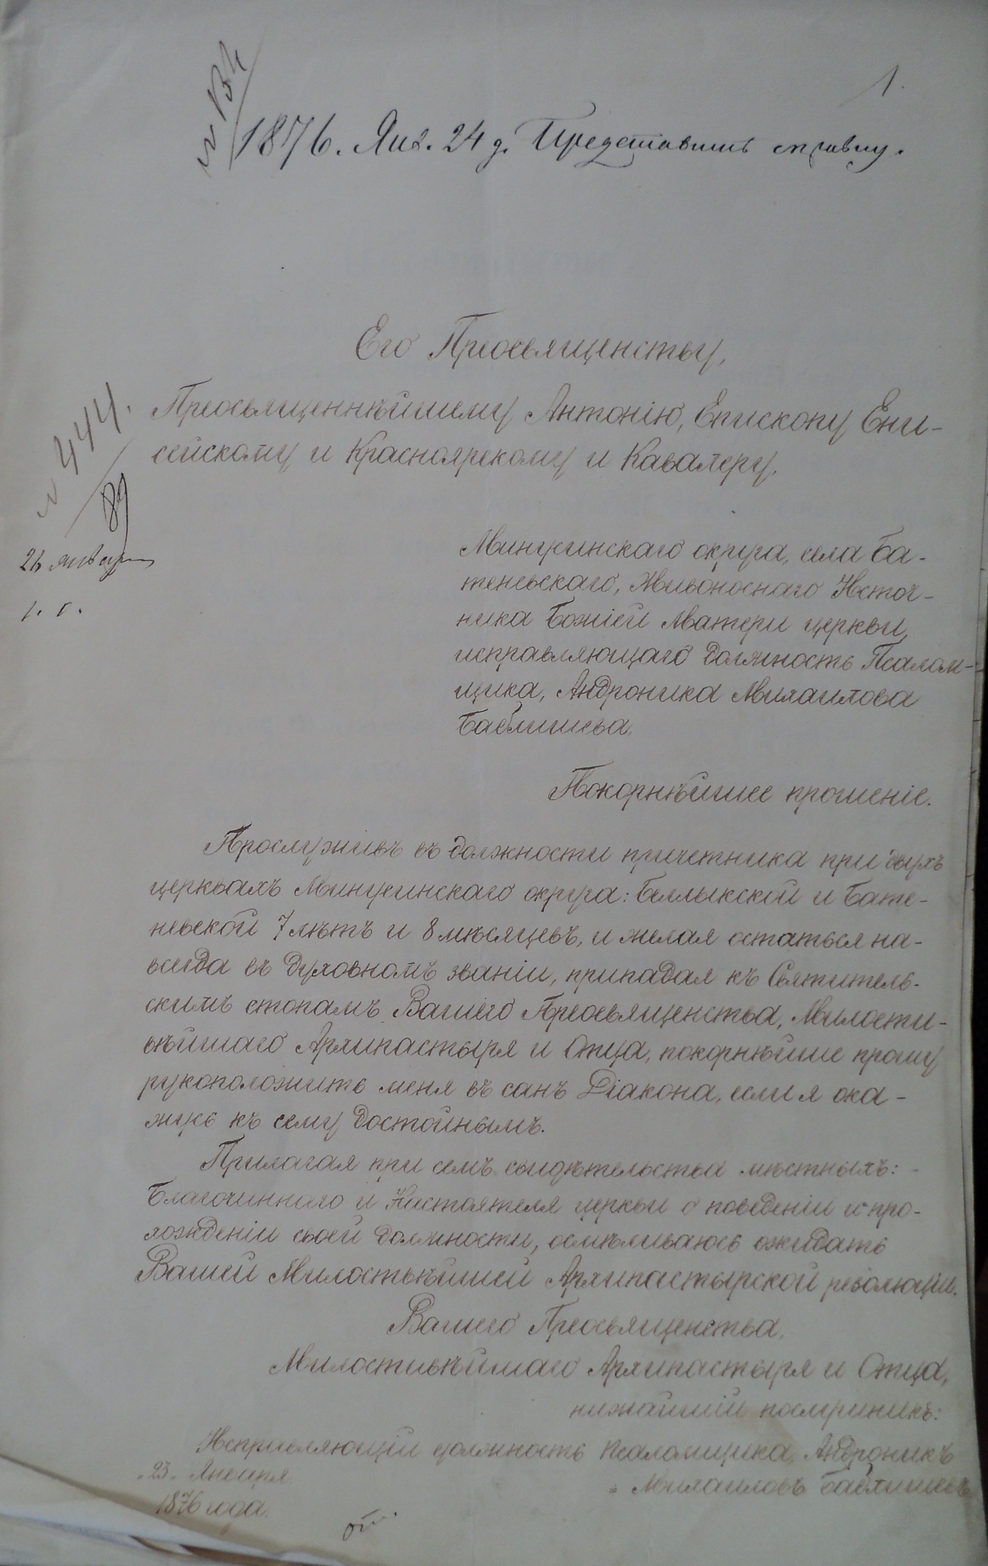 1.
№ 134
1876. Янв. 24 д. Представить справку.
Его Преосвященству,
№ 444.
Преосвященнѣйшему Антонію, Епископу Ени-
сейскому и Красноярскому и Кавалеру.
89
26 января
Минусинскаго округа, села Ба-
теневскаго, Живоноснаго Источ-
ника Божіей Матери церкви,
исправляющаго должность Псалом-
щика, Андроника Михаилова
Покорнѣйшее прошеніе.
Прослуживъ въ должности причетника при двухъ
церквахъ Минусинскаго округа: Беллыкской и Бате-
невской 7 лѣтъ и 8 мѣсяцевъ, и желая остаться на-
всегда въ духовномъ званіи, припадая къ Святитель-
скимъ стопамъ Вашего Преосвященства, Милости-
вѣйшаго Архипастыря и Отца, покорнѣйше прошу
рукоположить меня въ санъ Діакона, если я ока-
жусь къ сему достойнымъ.
Прилагая при семъ свидѣтельства мѣстныхъ:
Благочиннаго и Настоятеля церкви о поведеніи и про-
хожденіи своей должности, осмѣливаюсь ожидать
Вашей Милостивѣйшей Архипастырской резолюціи.
Вашего Преосвященства,
Милостивѣйшаго Архипастыря и Отца,
нижайшій послушникъ:
Исправляющій должность Псаломщика, Андроникъ
23. Января
Михаиловъ
1876 года.